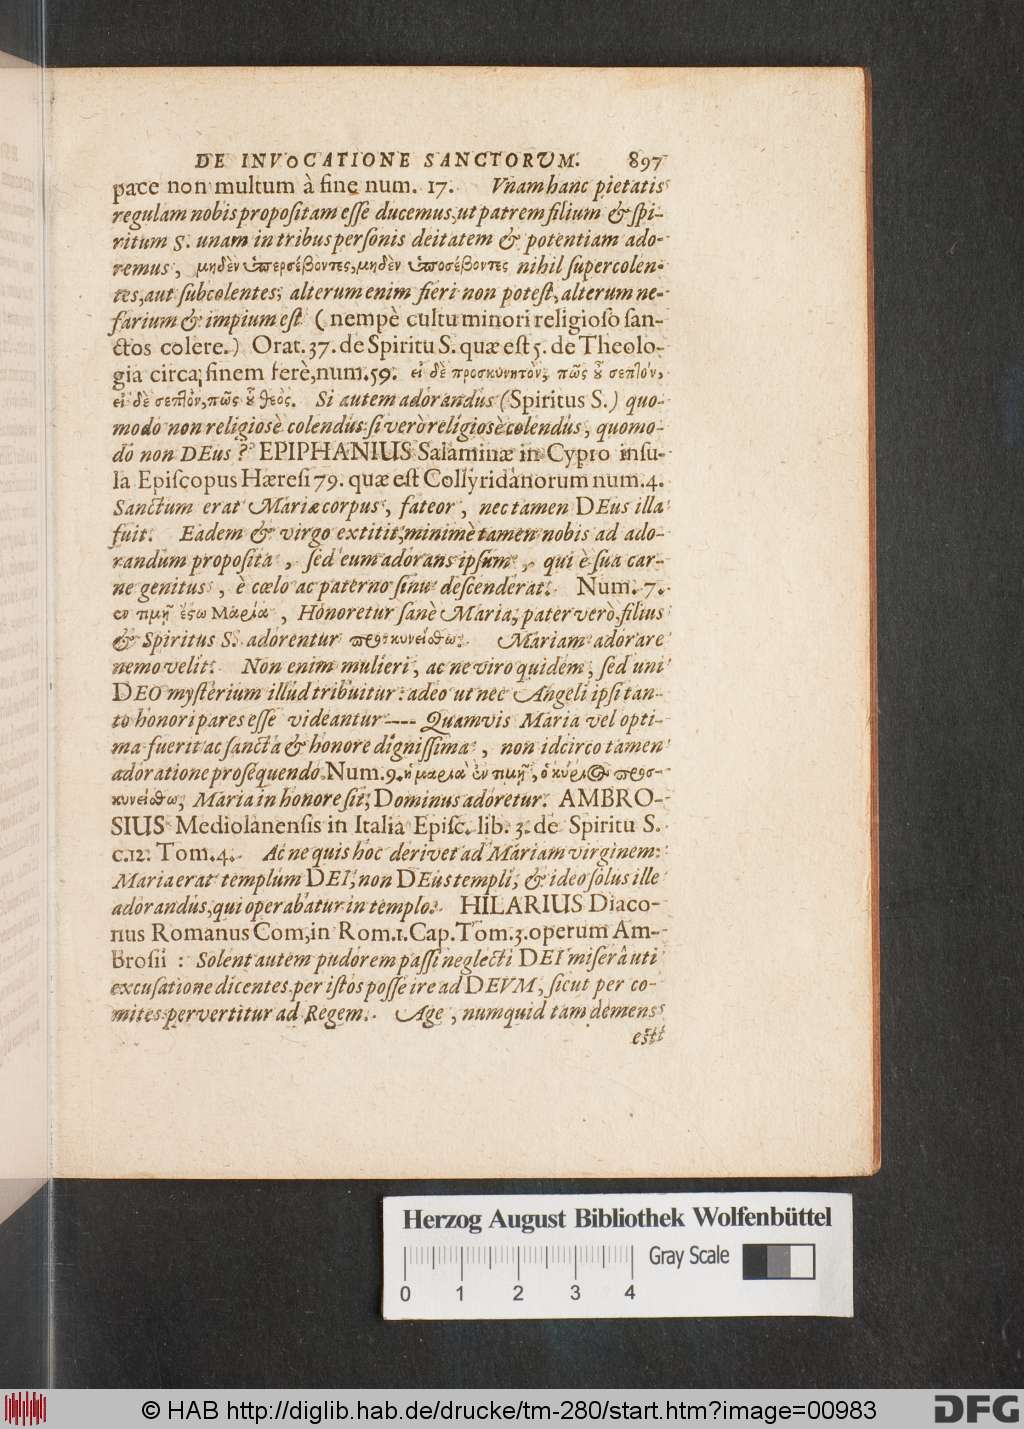 DE INVOCATIONE SANCTORVM. 897
pace non multum à fine num. 17. Vnam hanc pietatis
regulam nobis propositam esse ducemus, ut patrem filium & spi-
ritum S. unam in tribus personis deitatem & potentiam ado-
remus, μηδὲν ὑπερσέβοντες, μηδὲν ὑποσέβοντες nihil supercolen-
tes, aut subcolentes; alterum enim fieri non potest, alterum ne-
farium & impium est (nempè cultu minori religioso san-
ctos colere.) Orat. 37. de Spiritu S. quæ est 5. de Theolo-
gia circa finem ferè, num. 59. εἰ δὲ προσκυνητὸν, πῶς ȣ̓ σεπτὸν,
εἰ δὲ σεπτὸν, πῶς ȣ̓ θεός. Si autem adorandus (Spiritus S.) quo-
modo non religiosè colendus: si verò religiosè colendus, quomo-
do non DEus? EPIPHANIUS Salaminæ in Cypro insu-
la Episcopus Hæresi 79. quæ est Collyridanorum num. 4.
Sanctum erat Mariæ corpus, fateor, nec tamen DEus illa
fuit. Eadem & virgo extitit, minimè tamen nobis ad ado-
randum proposita, sed eum adorans ipsum, qui è sua car-
ne genitus, è cœlo ac paterno sinu descenderat. Num. 7.
ἐν τιμῇ ἔςω Μαρία, Honoretur sanè Maria, pater verò, filius
& Spiritus S. adorentur προσκυνείσθω. Mariam adorare
nemo velit. Non enim mulieri, ac ne viro quidem, sed uni
DEO mysterium illud tribuitur: adeo ut nec Angeli ipsi tan-
to honori pares esse videantur ---- Quamvis Maria vel opti-
ma fuerit ac sancta & honore dignissima, non idcirco tamen
adoratione prosequendo. Num. 9. ἡ μαρία ἐν τιμῇ, ὁ κύριος προσ-
κυνείσθω, Maria in honore sit, Dominus adoretur. AMBRO-
SIUS Mediolanensis in Italia Episc. lib. 3. de Spiritu S.
c. 12. Tom. 4. Ac ne quis hoc derivet ad Mariam virginem:
Maria erat templum DEI, non DEus templi, & ideo solus ille
adorandus, qui operabatur in templo. HILARIUS Diaco-
nus Romanus Com, in Rom. 1. Cap. Tom. 3. operum Am-
brosii: Solent autem pudorem passi neglecti DEI miserâ uti
excusatione dicentes per istos posse ire ad DEVM, sicut per co-
mites pervertitur ad Regem. Age, numquid tam demens
est
Herzog August Bibliothek Wolfenbüttel
Gray Scale
0 1 2 3 4
© HAB http://diglib.hab.de/drucke/tm-280/start.htm?image=00983
DFG